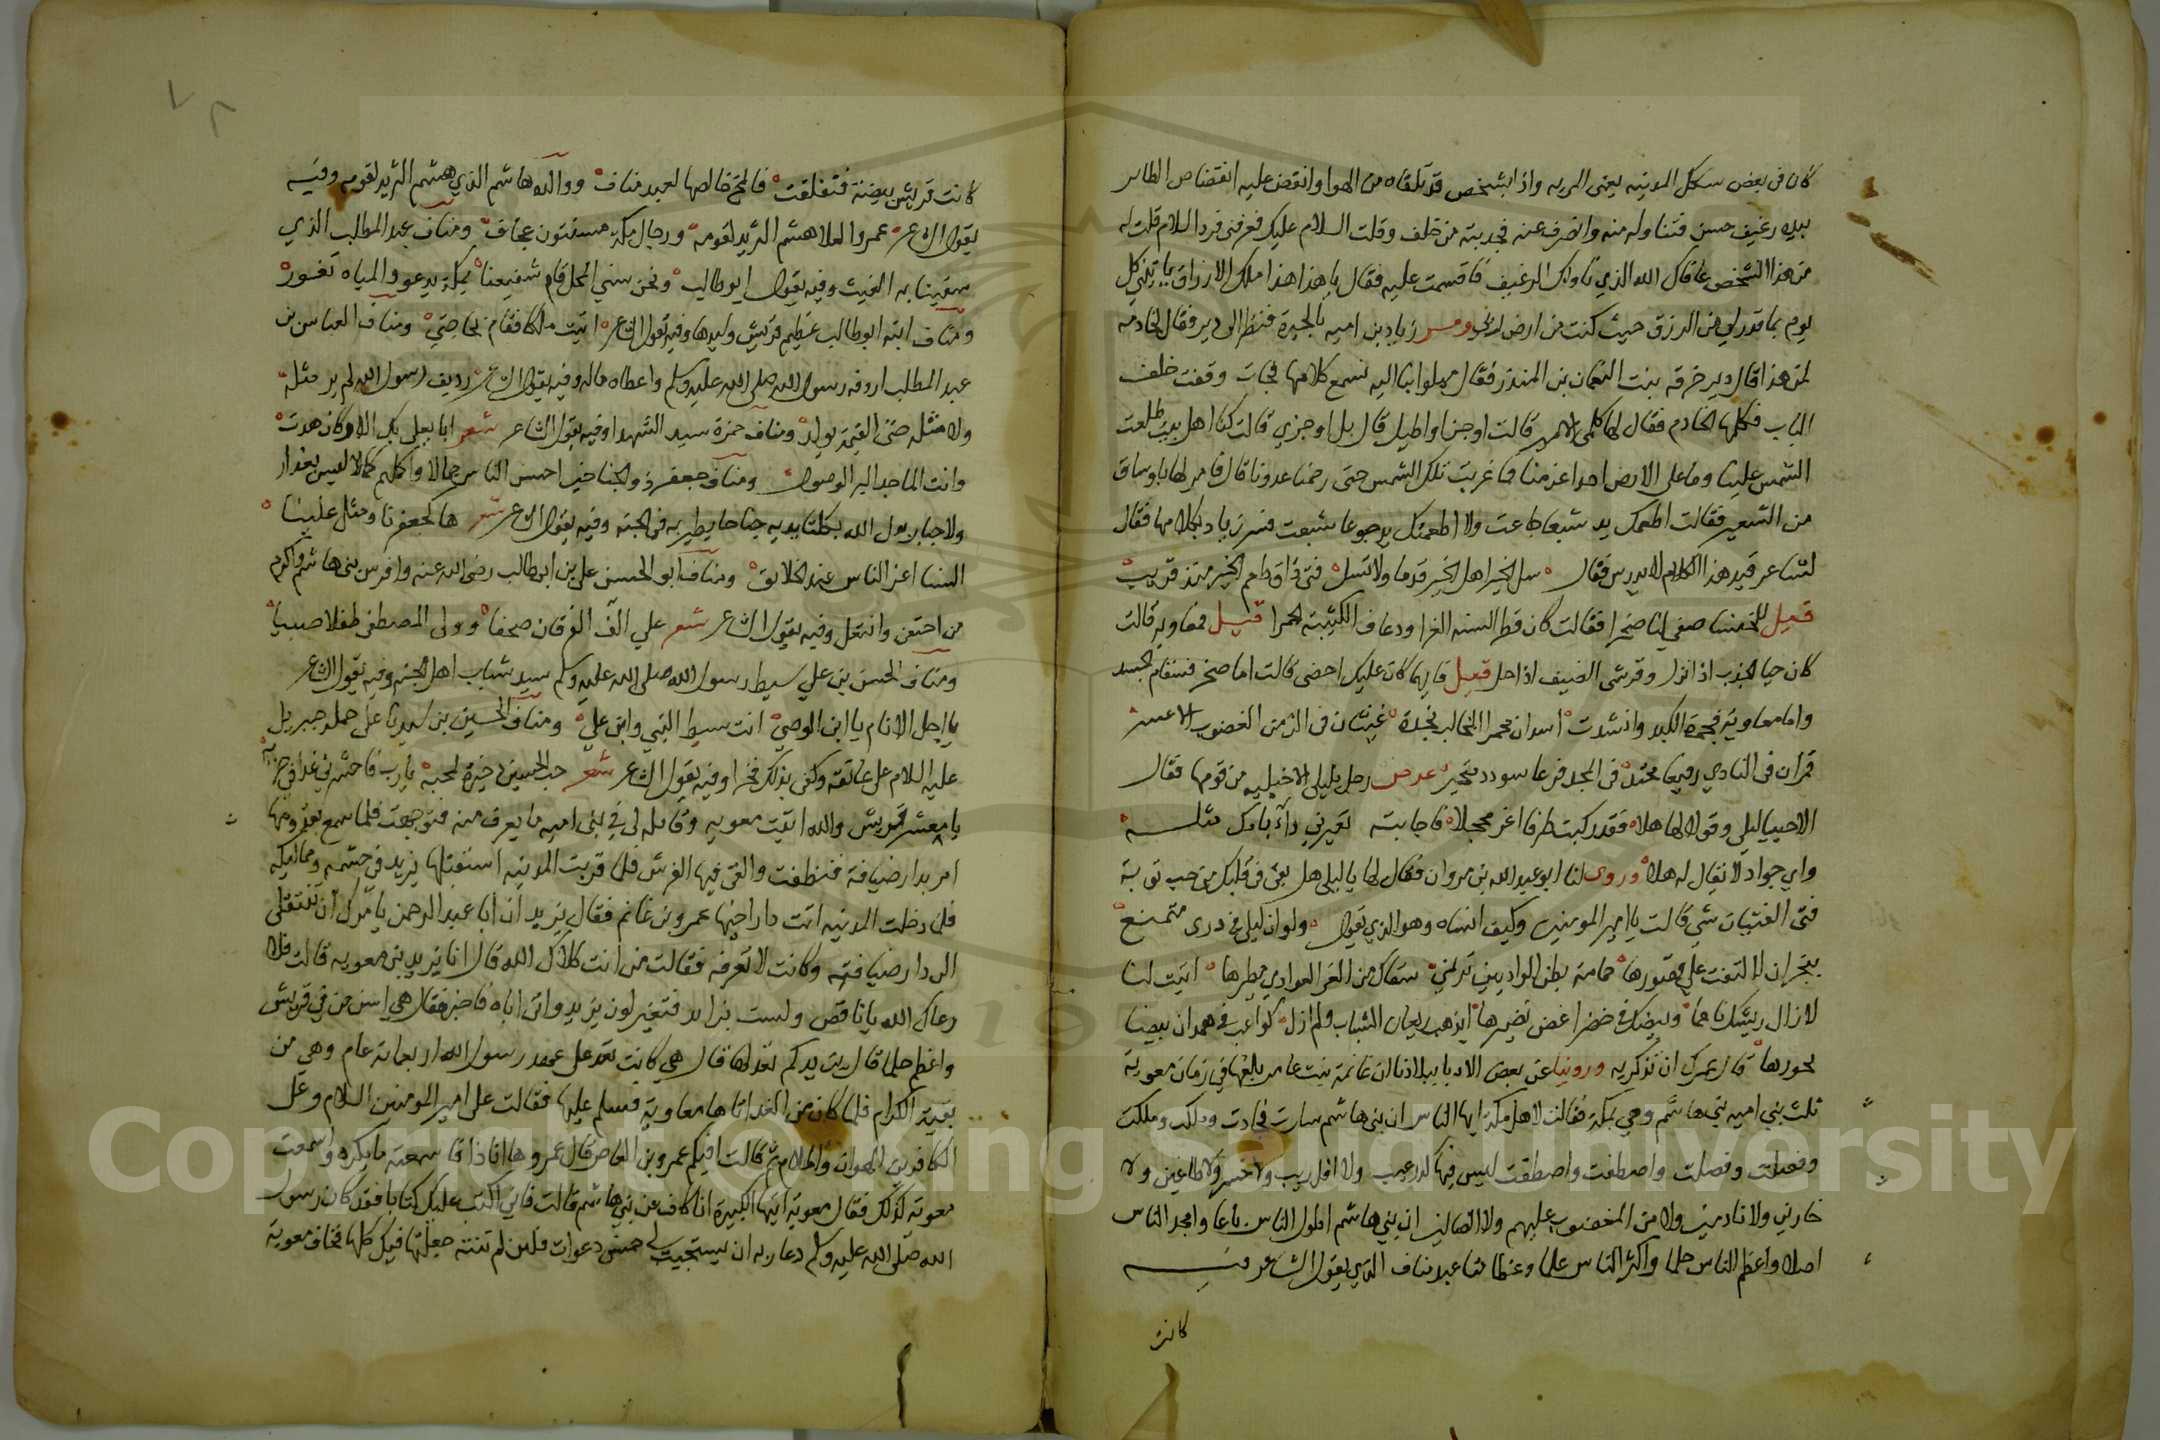 كان في بعض سكك المدينه يعني البريه واذا بشخص قد تلقاه من الهوا وانقض عليه انقضاض الطاير
بيده رغيف حسن فتناوله منه وانصرف عنه فجديته من خلف وقلت السلام عليك فعرفني فرد السلام قلت له
من هذا الشخص عافاك الله الذي ناولك الرغيف فاقسمت عليه فقال يا هذا هذا ملك الارزاق ياتيني كل
يوم بما قدر لي من الرزق حيث كنت من ارض الله ومر زياد بن اميه بالحيرة فنظر الى دير فقال لخادمه
لمن هذا قال دير حرقه بنت النعمان بن المنذر فقال ميلوا بنا اليه نسمع كلامها فجات وقفت خلف
الباب فكلمها الخادم فقال لها كلمي الامير قالت اوجز او اطيل قال بل اوجزي قالت كنا اهل بيت طلعت
الشمس علينا وما على الارض احد اعز منا فما غربت تلك الشمس حتى رحمنا عدونا قال فامر لها باوساق
من الشعير فقالت اطعمك يد شبعا جاعت ولا اطعمتك يد جوعا شبعت فسر زياد بكلامها فقال
لشاعر قيد هذا الكلام لا يدرس فقال سل الخير اهل الخير قدما ولا تسل فتى ذاق طعم الخير منذ قريب
قيل للخنسا صفي لنا صخرا فقالت كان قطر السنه الغرا ودعاف الكتيبة الحمرا قيل فمعاويه قالت
كان حيا الجدب اذا نزل وقرى الضيف اذا حل قيل فايهما كان عليك احنى قالت اما صخر فسقام الجسد
واما معاوية فجمرة الكبد وانشدت اسدان محمرا المخالب نجدة غيثان في الزمن الغضوب الاعسر
قمران في النادي رفيعا محتد في المجد فرعا سودد متخير عرض رجل لليلى الاخيليه من قومها فقال
الا حييا ليلى وقولا لها هلا فقد ركبت طرفا اغر محجلا فاجابته تعيرني داء بامك مثله
واي جواد لا يقال له هلا وروى لنا ابو عبد الله بن مروان فقال لها يا ليلى هل بقى في قلبك من حب توبة
فتى الفتيان شي قالت يا امير المومنين وكيف انساه وهو الذي يقول ولو ان ليلى في ذرى متمنع
بنجران لا التفت علي قصورها حمامة بطن الواديين ترنمي سقاك من الغر الغوادي مطيرها ابيت لنا
لازال ريشك ناعما وبيضك في خضرا غض نضيرها ايذهب ريعان الشباب ولم ازل كواعب في همدان بيضا
نحورها قال عمرك ان تذكريه وروينا عن بعض الادبا ببلادنا ان غانمة بنت عامر بلغها في زمان معوية
ثلب بني اميه بني هاشم وهي بمكة فقالت لاهل مكة ايها الناس ان بني هاشم سادت فجادت وملكت وملكت
وفضلت وفضلت واصطفت واصطفت ليس فيها كدر عيب ولا افك ريب ولا خسروا طاغين ولا
خازين ولا نادمين ولا من المغضوب عليهم ولا الضالين ان بني هاشم اطول الناس باعا وامجد الناس
اصلا واعظم الناس حلما واكثر الناس علما وعطا منا عبد مناف الذي يقول الشاعر فيه
كانت
كانت قريش بيضة فتفلقت فالمح خالصها لعبد مناف ووالده هاشم الذي هشم الثريد لقومه وفيه
يقول الشاعر عمرو العلا هشم الثريد لقومه ورجال مكة مسنتون عجاف ومناف عبد المطلب الذي
سقينا به الغيث وفيه يقول ابو طالب ونحن سني المحل قام شفيعنا بمكة يدعو والمياه تغور
ومناف ابنه ابو طالب عظيم قريش وسيدها وفيه يقول الشاعر اتيت ملكا فقام بحاجتي ومناف العباس بن
عبد المطلب اردفه رسول الله صلى الله عليه وسلم واعطاه ماله وفيه يقول الشاعر رديف رسول الله لم ير مثله
ولا مثله حتى القيمة يولد ومناف حمزة سيد الشهدا وفيه يقول الشاعر شعر ابا يعلى بك الاركان هدت
وانت الماجد البر الوصول ومناف جعفر ذو الجناحين احسن الناس جمالا واكملهم كمالا ليس بغدار
ولا جبان بدل الله بكلتا يديه جناحا يطير به في الجنه وفيه يقول الشاعر شعر هات كجعفرنا ومثل علينا
السنا اعز الناس عند الخلايق ومناف ابو الحسن علي بن ابي طالب رضي الله عنه وافرس بني هاشم واكرم
من احتفى وانتعل وفيه يقول الشاعر شعر علي الف الفرقان صحفا ووالى المصطفى طفلا صبيا
ومناف الحسن بن علي سبط رسول الله صلى الله عليه وسلم سيد شباب اهل الجنه وفيه يقول الشاعر
يا اجل الانام يا ابن الوصي انت سبط النبي وابن علي ومناف الحسين بن سيدنا علي حمله جبريل
عليه السلام على عاتقه وكفى بذلك فخرا وفيه يقول الشاعر شعر حب الحسين ذخيرة لمحبه يا رب فاحشرني غدا في حزبه
يا معشر قريش والله اتيت معويه وقايله له في بني اميه ما يعرق منه فتوجهت فلما سمع بقدومها
امر بدار ضيافة فنظفت والقي فيها الفرش فلما قربت المدينه استقبلها يزيد في حشمه ومماليكه
فلما دخلت المدينه اتت دار اخيها عمرو بن غانم فقال يزيد ان ابا عبد الرحمن يامرك ان تنتقلي
الى دار ضيافته وكانت لا تعرفه فقالت من انت كلاك الله قال انا يزيد بن معويه قالت فلا
رعاك الله يا ناقص ولست بزايد فتغير لون يزيد واتى اباه فاخبره فقال هي اسن من في قريش
واعظم حلما قال يزيد كم تعد لها قال هي كانت تعد على عهد رسول الله اربعماية عام وهي من
بقية الكرام فلما كان من الغد اتاها معاوية فسلم عليها فقالت على امير المومنين السلام وعلى
الكافرين الهوان والملام ثم قالت افيكم عمرو بن العاص قال عمرو ها انا ذا فاسمعته ما يكره واسمعت
معوية كذلك فقال معوية ايتها الكبيرة انا كاف عن بني هاشم قالت فاني اكتب عليك كتابا فقد كان رسول
الله صلى الله عليه وسلم دعا ربه ان يستجيب لي خمس دعوات فلين لم تنته جعلتها فيك كلها فخاف معوية